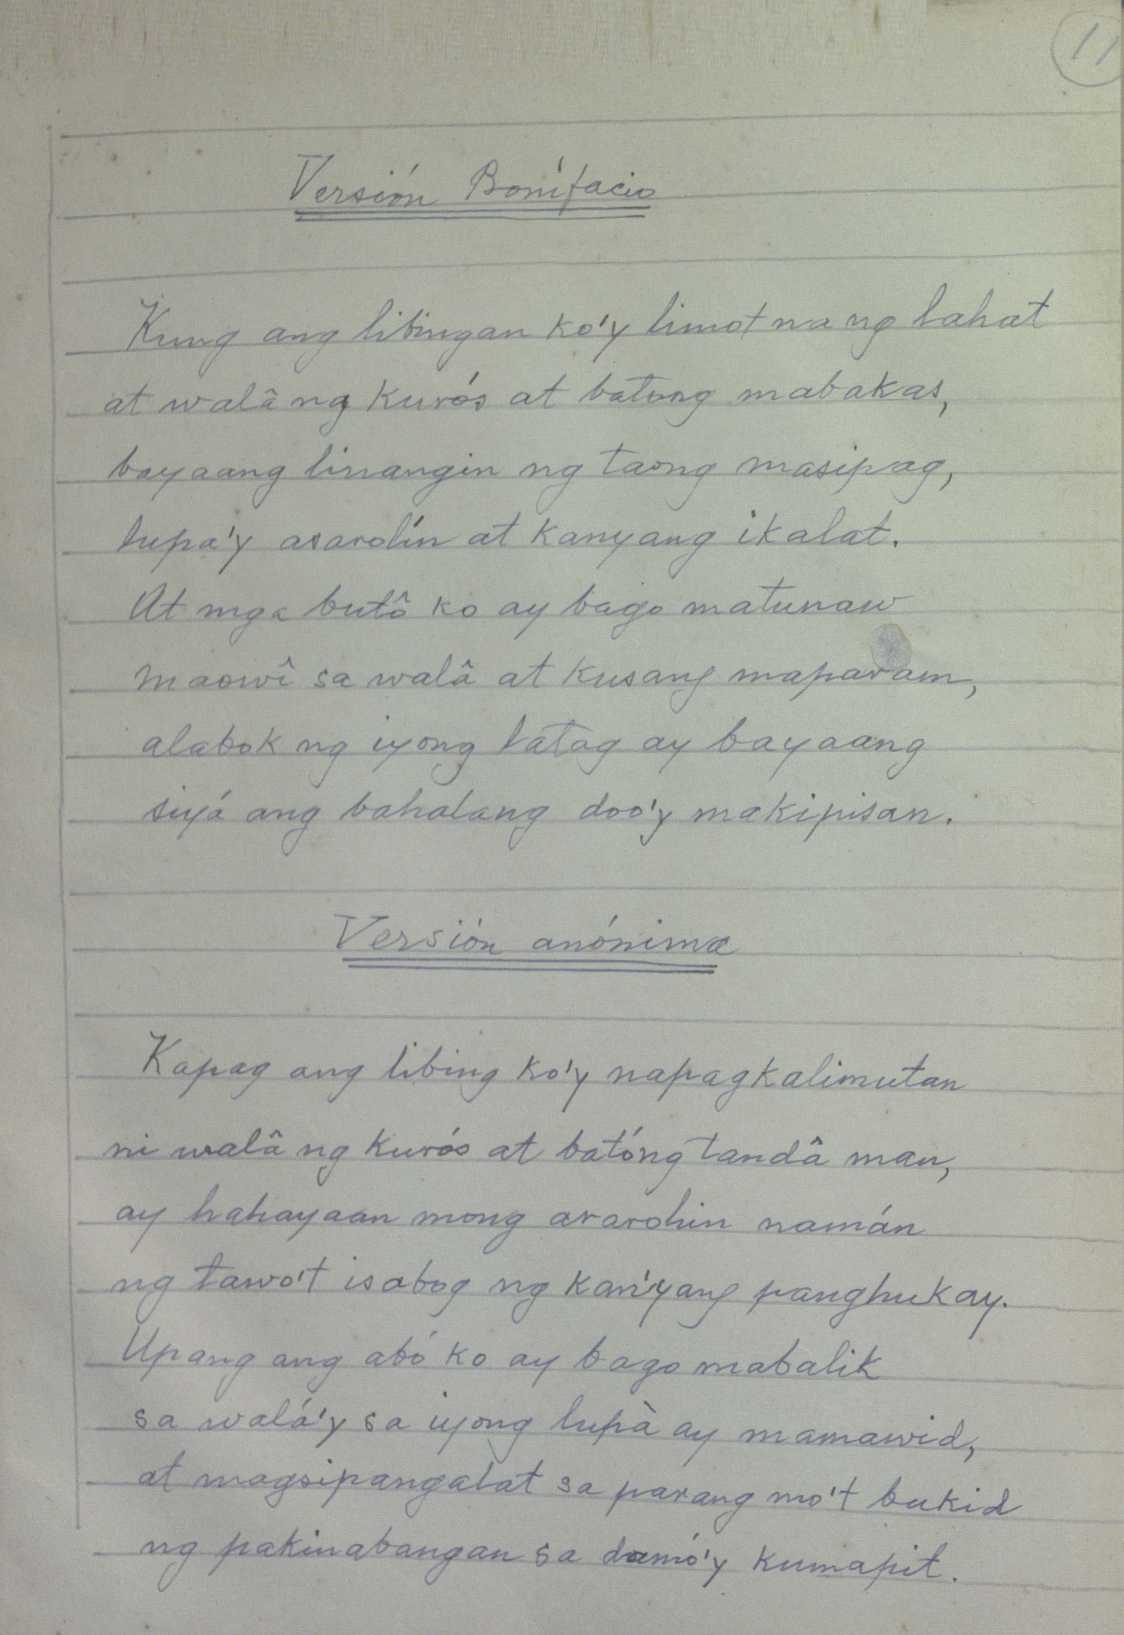 11
Versión Bonifacio
Kung ang libingan ko'y limot na ng lahat
at walâ ng kurós at batong mabakas,
bayaang linangin ng taong masipag,
lupa'y asarolín at kanyang ikalat.
At mga butô ko ay bago matunaw
maowî sa walâ at kusang maparam,
alabok ng iyong latag ay bayaang
siyá ang bahalang doo'y makipisan.
Versión anónima
Kapag ang libing ko'y napagkalimutan
ni walâ ng kurós at batóng tandâ man,
ay hahayaan mong ararohin namán
ng tawo't isabog ng kan'yang panghukay.
Upang ang abó ko ay bago mabalik
sa walá'y sa iyong lupà ay mamawid,
at magsipangalat sa parang mo't bukid
ng pakinabangan sa damó'y kumapit.